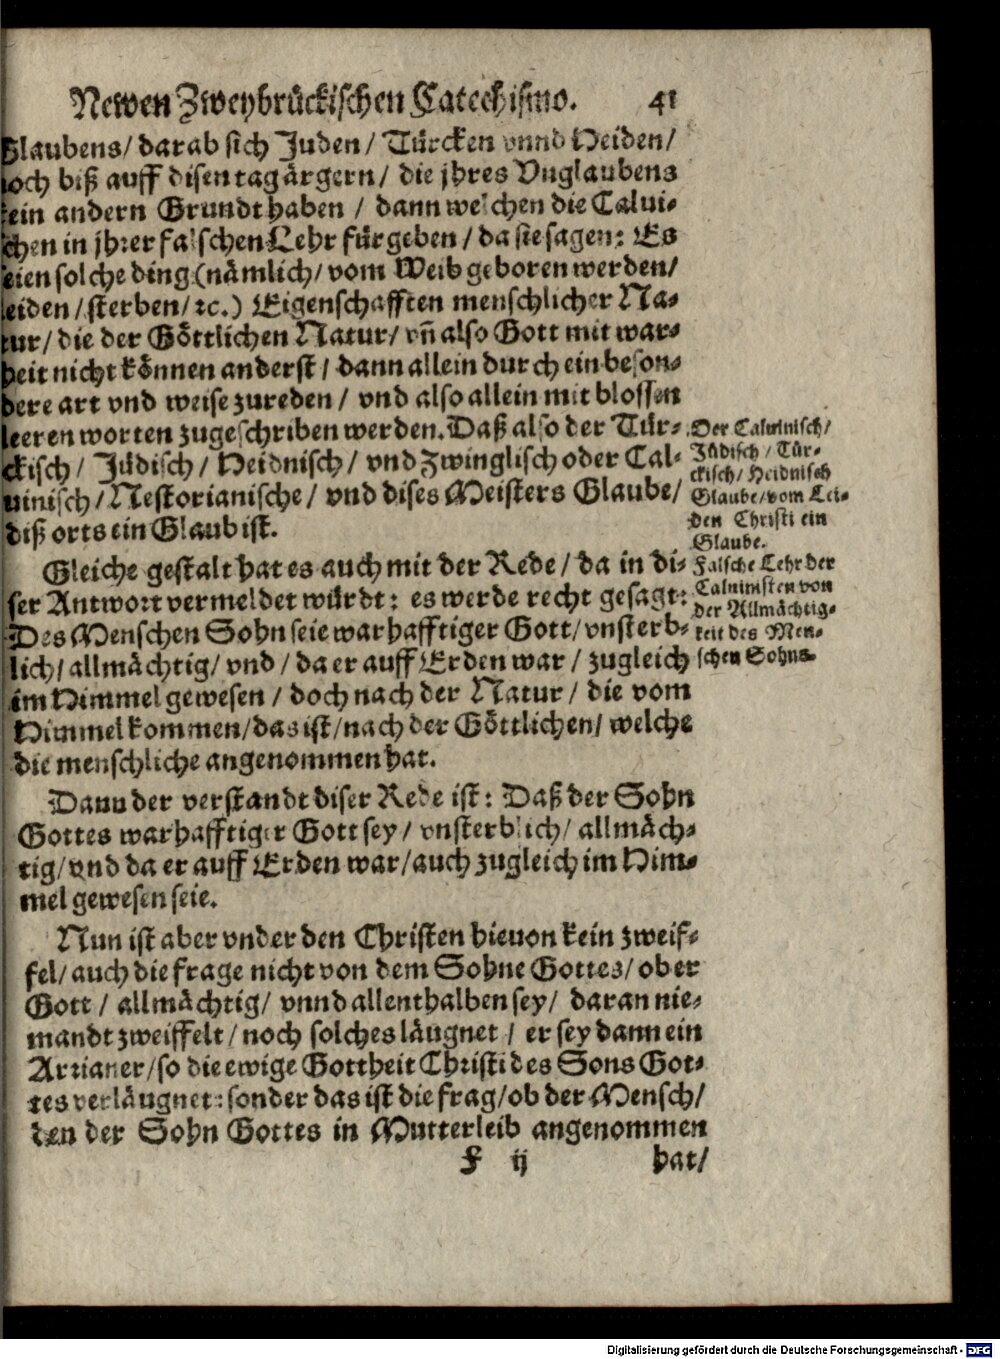 Newen Zweybrückischen Catechismo. 41
Glaubens/ darab sich Juden/ Türcken vnnd Heiden/
noch biß auff disen tag ärgern/ die jhres Vnglaubens
kein andern Grundt haben / dann welchen die Calui-
schen in jhrer falschen Lehr fürgeben / da sie sagen: Es
seien solche ding (nämlich/ vom Weib geboren werden/
leiden / sterben/ ꝛc.) Eigenschafften menschlicher Na-
tur/ die der Göttlichen Natur/ vñ also Gott mit war-
heit nicht können anderst / dann allein durch ein beson-
dere art vnd weise zureden / vnd also allein mit blossen
leeren worten zugeschriben werden. Daß also der Tür-
ckisch / Jüdisch / Heidnisch / vnd Zwinglisch oder Cal-
uinisch / Nestorianische / vnd dises Meisters Glaube/
diß orts ein Glaub ist.
Der Caluinisch/
Jüdisch / Tür-
ckisch / Heidnisch
Glaube/ vom Lei-
den Christi ein
Glaube.
Gleiche gestalt hat es auch mit der Rede / da in di-
ser Antwort vermeldet würdt: es werde recht gesagt:
Des Menschen Sohn seie warhafftiger Gott/ vnsterb-
lich/ allmächtig/ vnd / da er auff Erden war / zugleich
im Himmel gewesen / doch nach der Natur / die vom
Himmel kommen/ das ist/ nach der Göttlichen/ welche
die menschliche angenommen hat.
Falsche Lehr der
Caluinisten von
der Allmächtig-
keit des Men-
schen Sohns.
Dann der verstandt diser Rede ist: Daß der Sohn
Gottes warhafftiger Gott sey / vnsterblich/ allmäch-
tig/ vnd da er auff Erden war/ auch zugleich im Him-
mel gewesen seie.
Nun ist aber vnder den Christen hieuon kein zweif-
fel/ auch die frage nicht von dem Sohne Gottes/ ob er
Gott / allmächtig/ vnnd allenthalben sey/ daran nie-
mandt zweiffelt / noch solches läugnet / er sey dann ein
Arrianer/ so die ewige Gottheit Christi des Sons Got-
tes verläugnet: sonder das ist die frag/ ob der Mensch/
den der Sohn Gottes in Mutterleib angenommen
F ij hat/
Digitalisierung gefördert durch die Deutsche Forschungsgemeinschaft - DFG